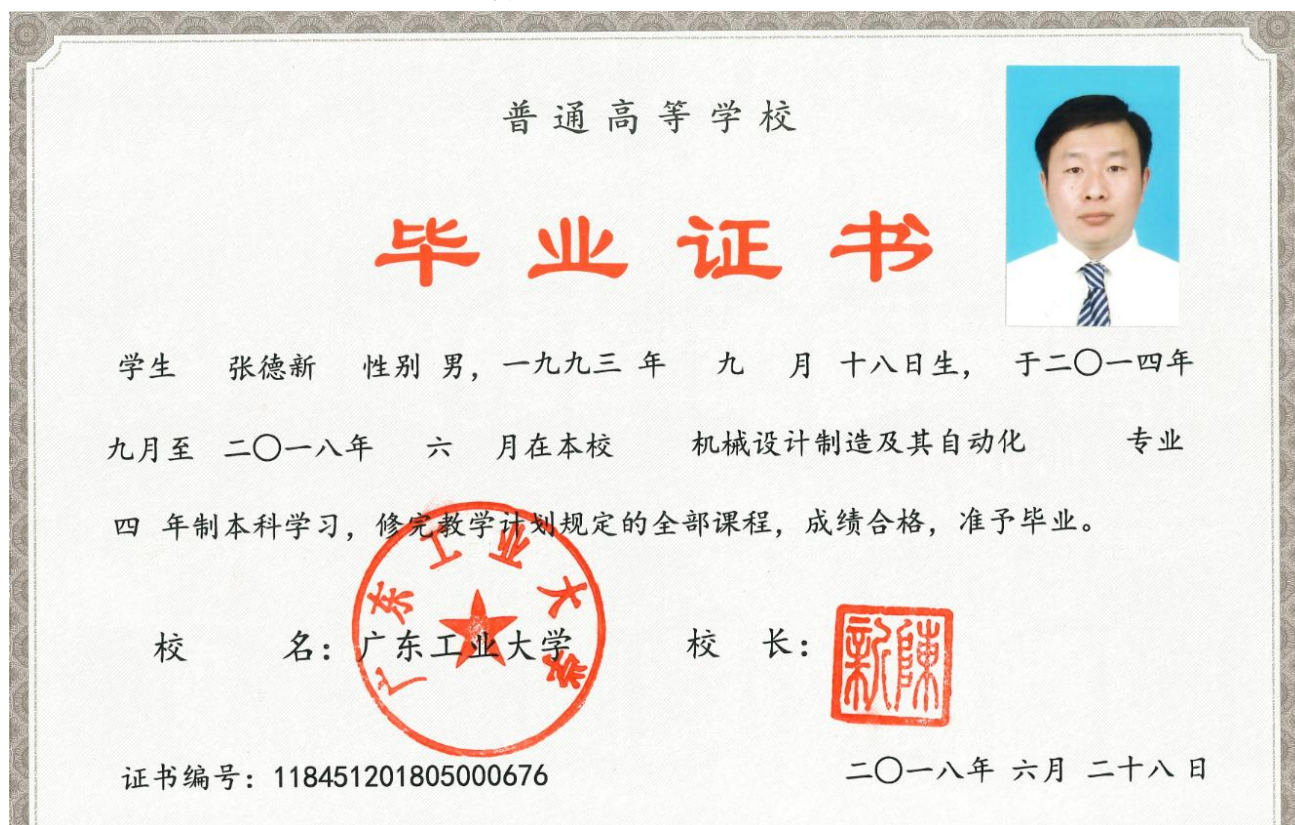 普通高等学校
毕业证书
学生 张德新 性别 男，一九九三 年 九 月 十八日生， 于二〇一四年
九月至 二〇一八年 六 月在本校 机械设计制造及其自动化 专业
四 年制本科学习，修完教学计划规定的全部课程，成绩合格，准予毕业。
广东工业大学
校 名：广东工业大学 校 长：
陳新
证书编号：118451201805000676 二〇一八年 六月 二十八 日